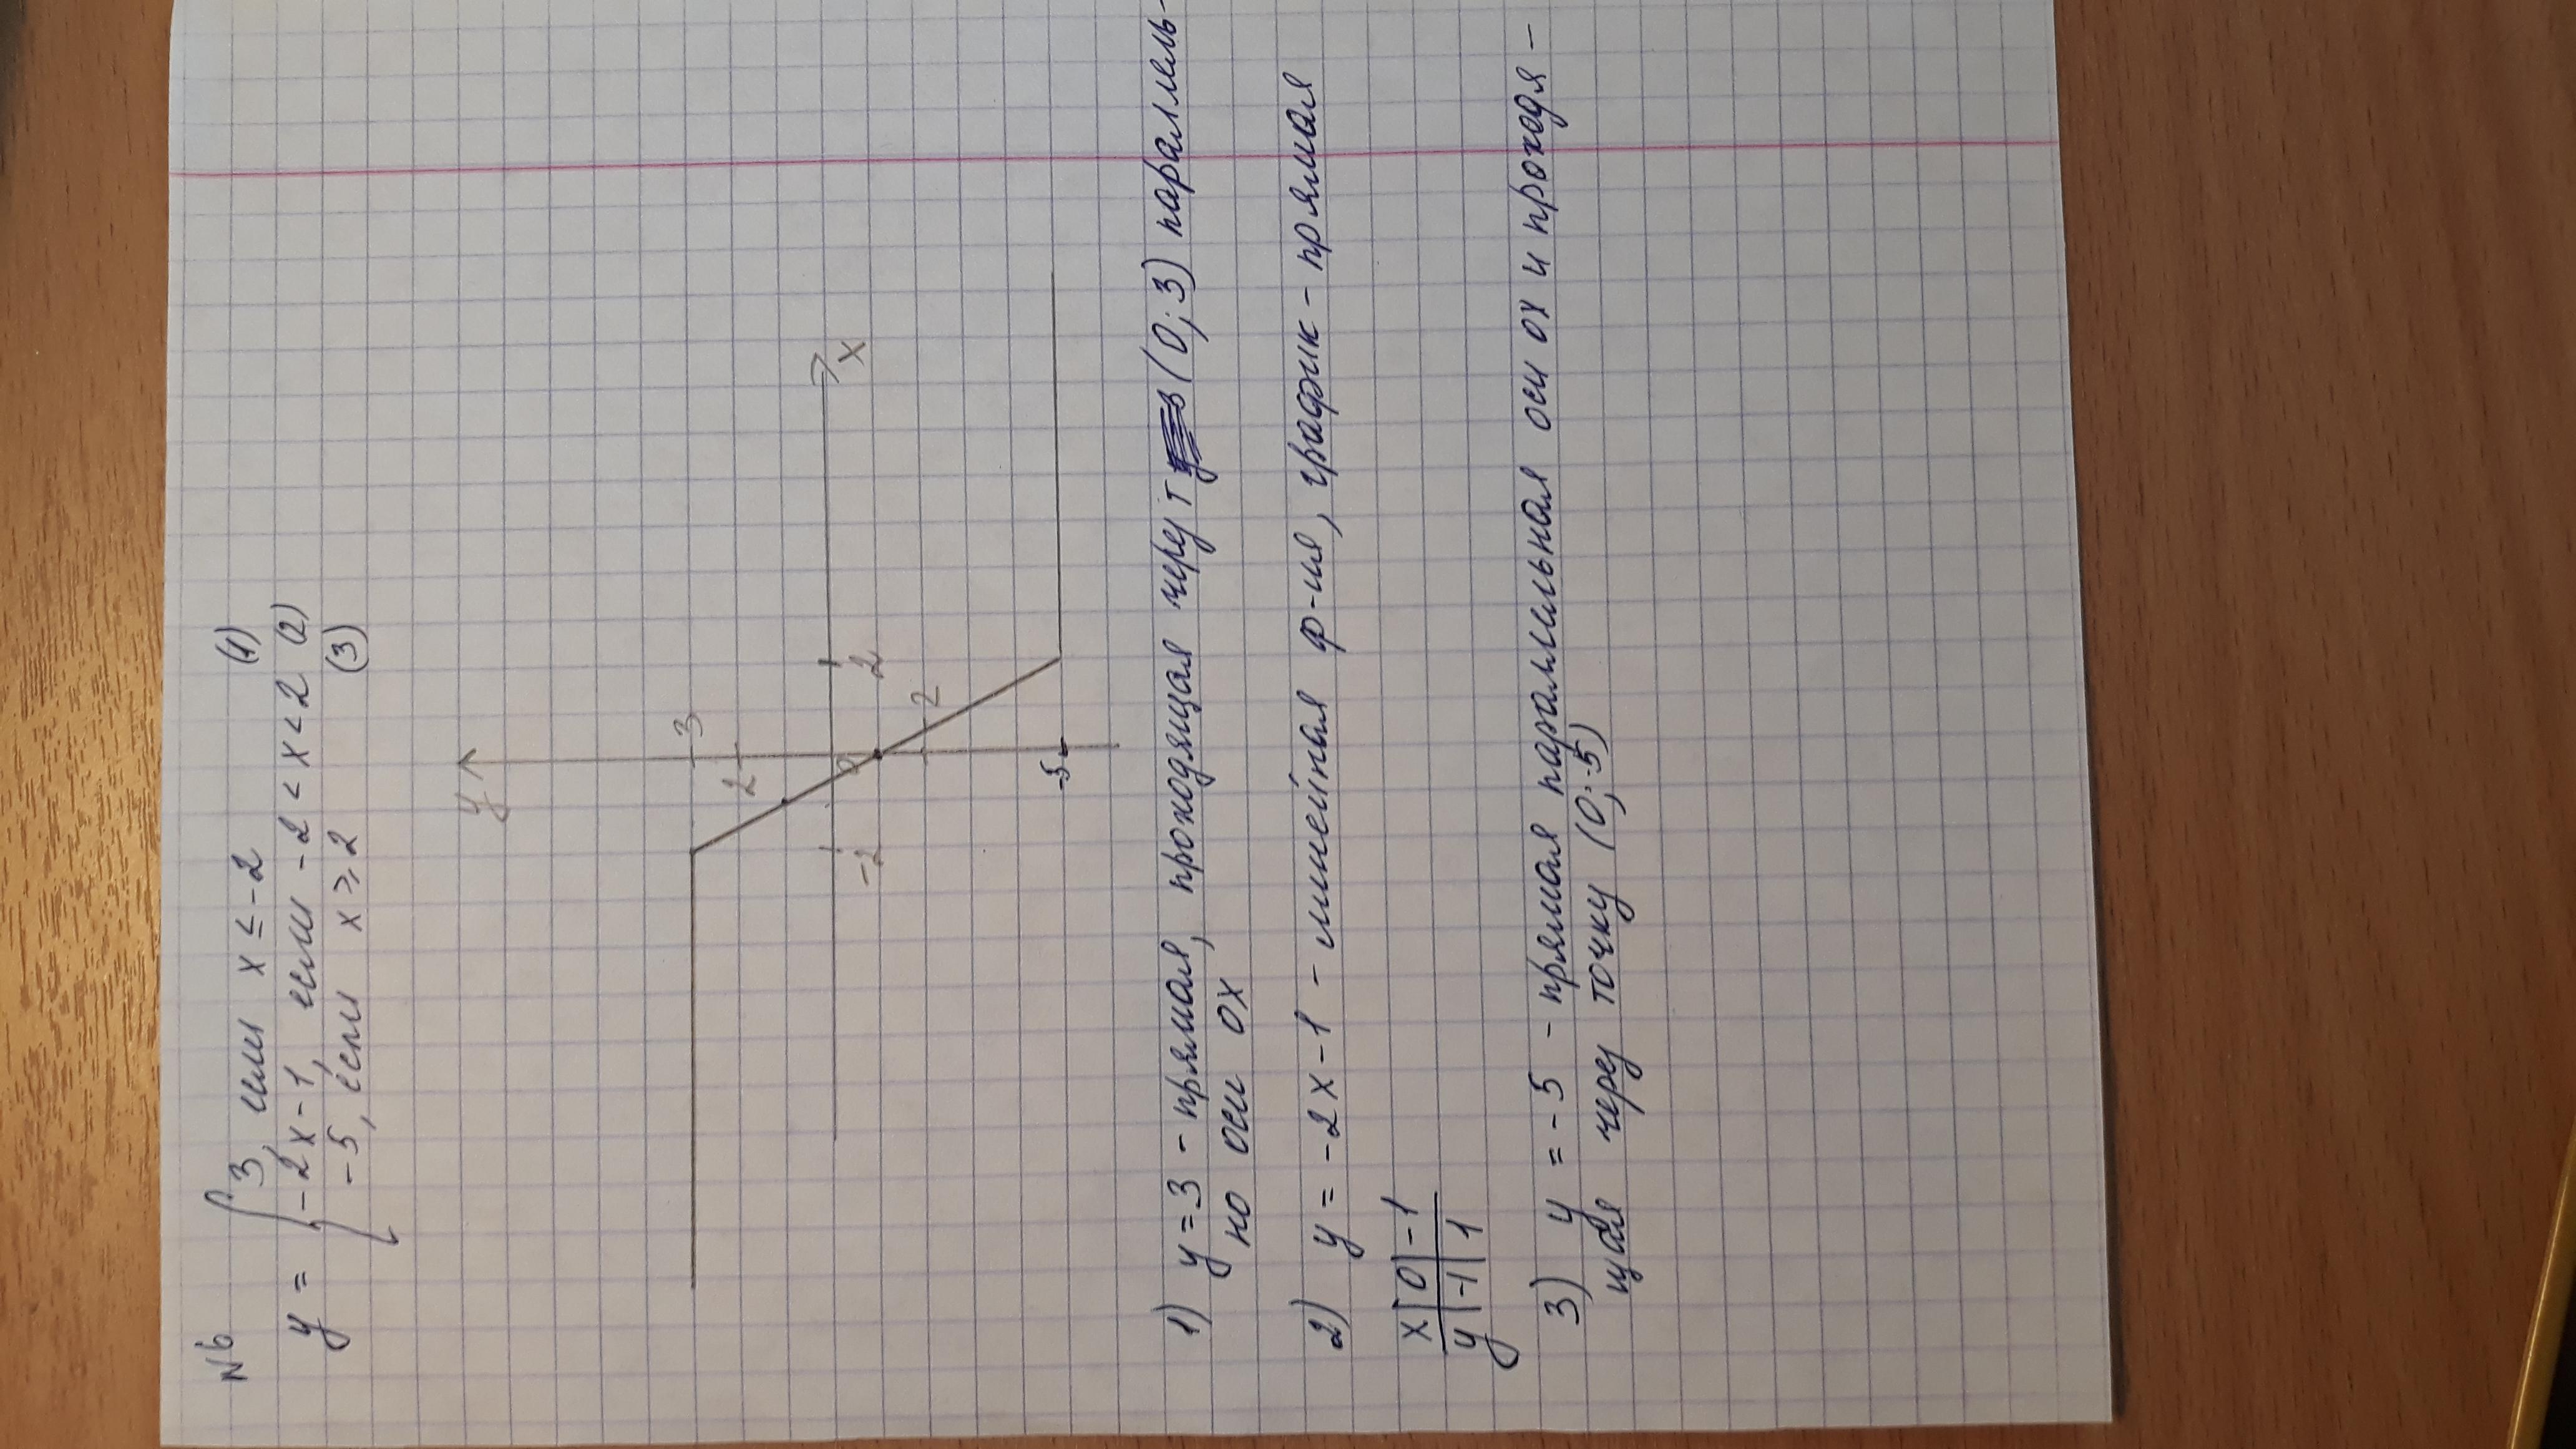 N6
y = { 3, если x ≤ -2 (1)
-2x-1, если -2 < x < 2 (2)
-5, если x ⩾ 2 (3)
y
3
2
-2
0
2
x
2
-5
1) y=3 - прямая, проходящая через т (0; 3) параллель-
но оси ox
2) y = -2x-1 - линейная ф-ия, график - прямая
x | 0 | -1
y | -1 | 1
3) y = -5 - прямая параллельная оси ox и проходя-
щая через точку (0; -5)